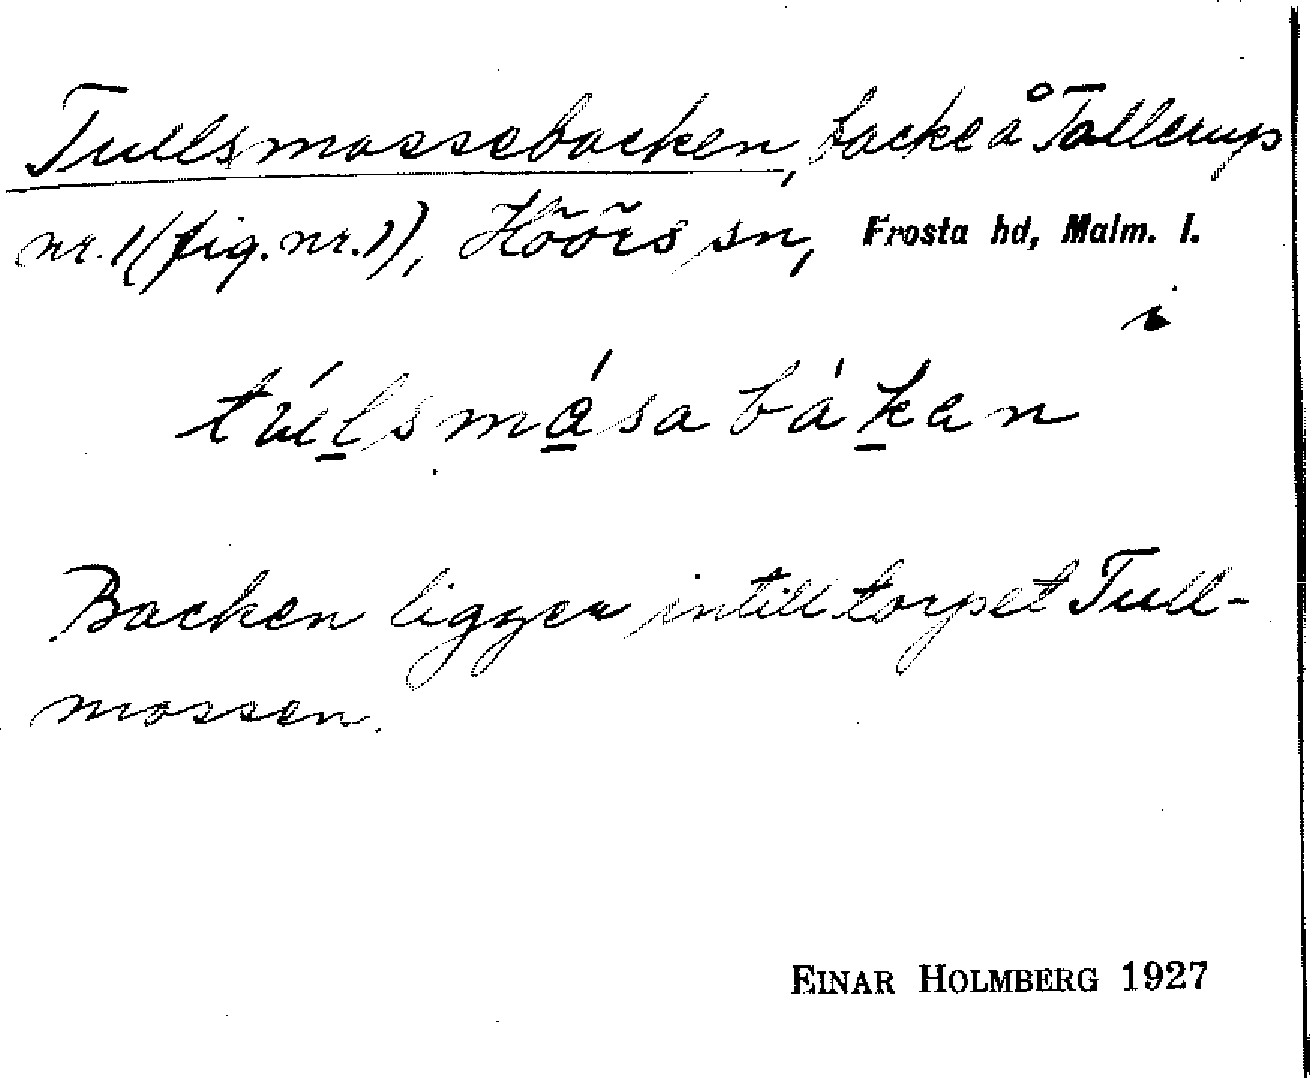 Tullsmossebacken, backe å Tollerup
nr. 1 (fig. nr. 1), Höörs sn, Frosta hd, Malm. l.
i
túlsmåsa bákan
Backen ligger intill torpet Tull-
mossen.
EINAR HOLMBERG 1927